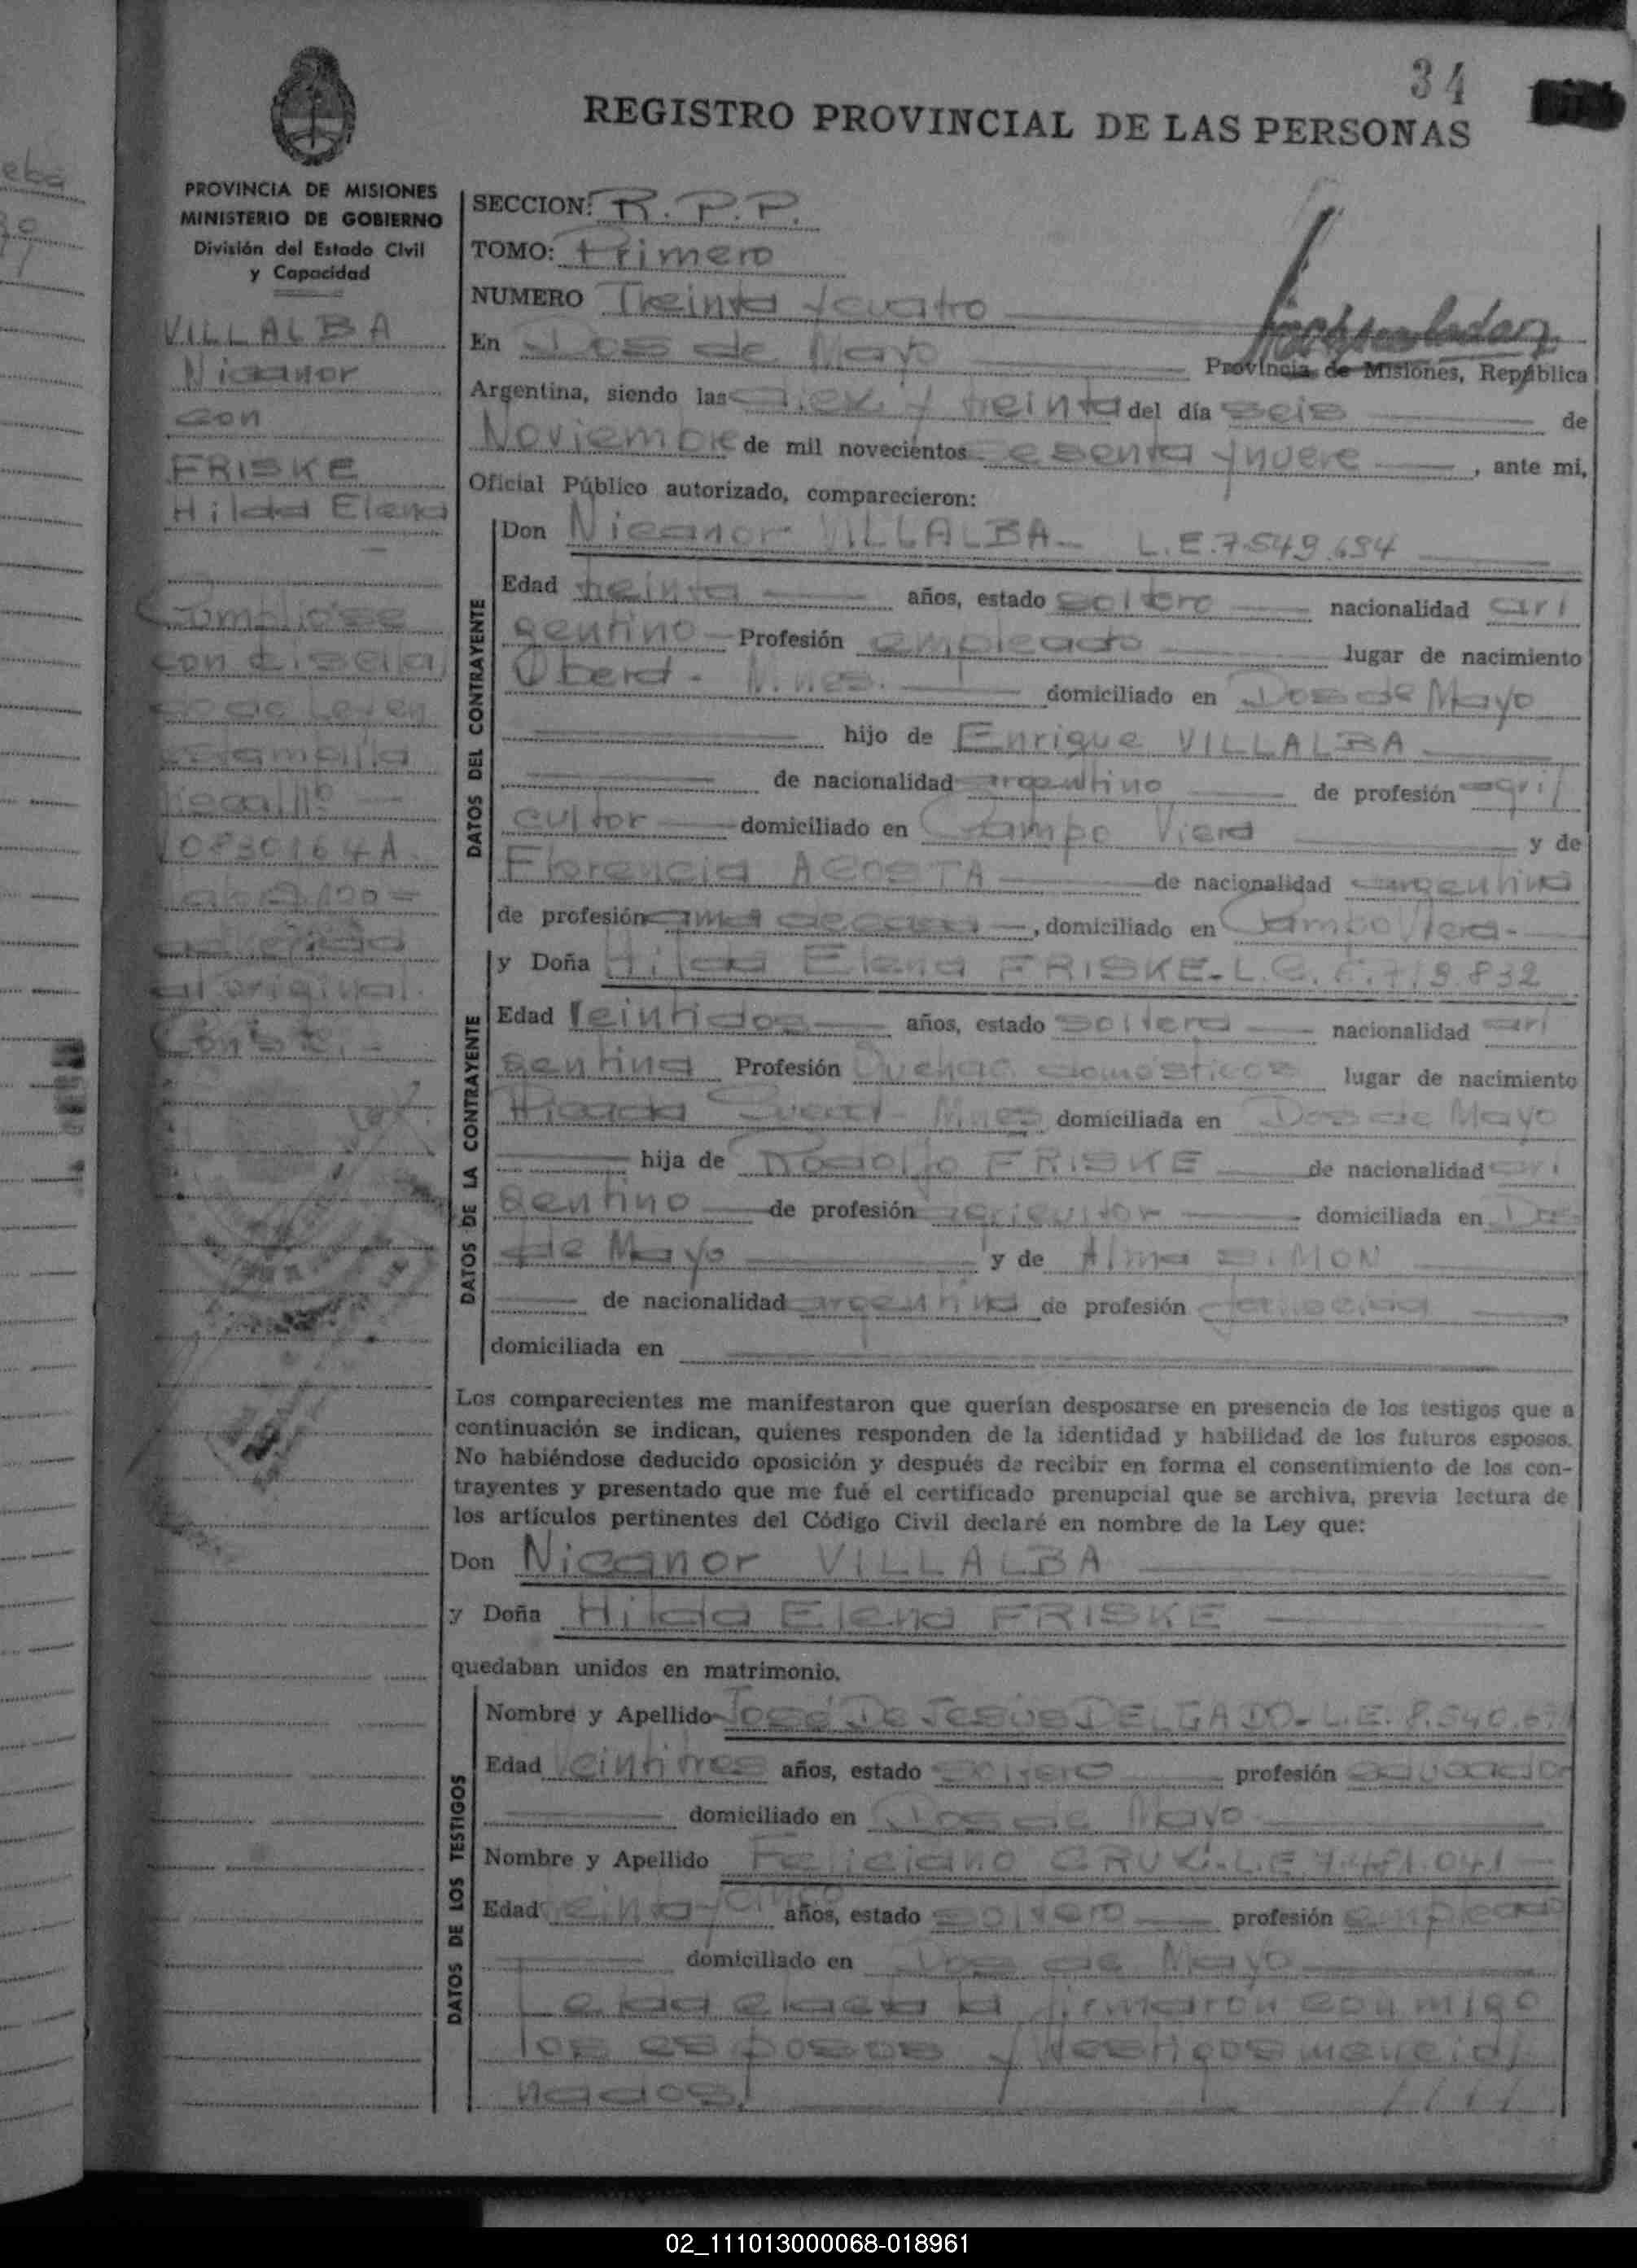 34
REGISTRO PROVINCIAL DE LAS PERSONAS
PROVINCIA DE MISIONES
MINISTERIO DE GOBIERNO
División del Estado Civil
y Capacidad
VILLALBA
Nicanor
con
FRISKE
Hilda Elena
Cumplióse
con el sella
do de Ley en
estampilla
10830164A
adherida
al original.
Conste.-
SECCION: R.P.P.
TOMO: Primero
NUMERO Treinta y cuatro
En Dos de Mayo Provincia de Misiones, República
Argentina, siendo las diez y treinta del día seis de
Noviembre de mil novecientos sesenta y nueve, ante mi,
Oficial Público autorizado, comparecieron:
DATOS DEL CONTRAYENTE
Don Nicanor VILLALBA- L.E. 7.549.694
Edad treinta años, estado soltero nacionalidad ar
gentino Profesión empleado lugar de nacimiento
Oberá - Mnes. domiciliado en Dos de Mayo
hijo de Enrique VILLALBA
de nacionalidad argentino de profesión agri
cultor domiciliado en Campo Viera y de
Florencia ACOSTA de nacionalidad argentina
de profesión ama de casa, domiciliado en Campo Viera-
DATOS DE LA CONTRAYENTE
y Doña Hilda Elena FRISKE- L.C.
Edad Veintidos años, estado soltera nacionalidad ar
gentina Profesión Quehac domésticos lugar de nacimiento
Picada Mnes domiciliada en Dos de Mayo
hija de Rodolfo FRISKE de nacionalidad ar
gentino de profesión agricultor domiciliada en Dos
de Mayo y de Alma SIMON
de nacionalidad argentina de profesión fallecida
domiciliada en
Los comparecientes me manifestaron que querían desposarse en presencia de los testigos que a
continuación se indican, quienes responden de la identidad y habilidad de los futuros esposos.
No habiéndose deducido oposición y después de recibir en forma el consentimiento de los con-
trayentes y presentado que me fué el certificado prenupcial que se archiva, previa lectura de
los artículos pertinentes del Código Civil declaré en nombre de la Ley que:
Don Nicanor VILLALBA
y Doña Hilda Elena FRISKE
quedaban unidos en matrimonio.
DATOS DE LOS TESTIGOS
Nombre y Apellido José De Jesús DELGADO- L.E.
Edad Veintitres años, estado soltero profesión
domiciliado en Dos de Mayo
Nombre y Apellido Feliciano L.E. 7.481.041
Edad treinta y cinco años, estado soltero profesión empleado
domiciliado en Dos de Mayo
Leída el acta la firmaron conmigo
los esposos y testigos mencio
nados.
02_111013000068-018961